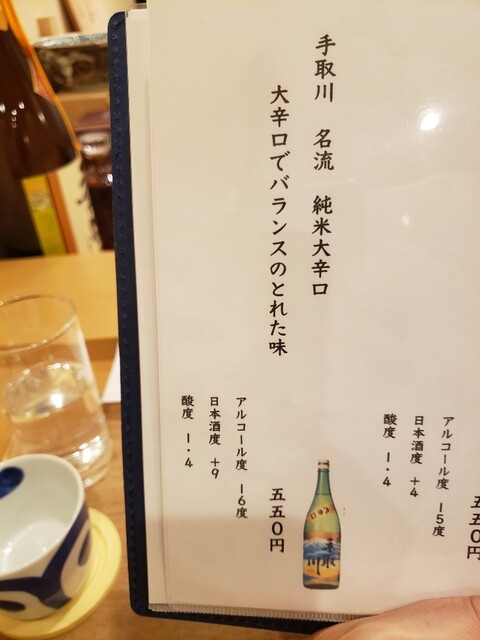 五五〇円
アルコール度 15度
日本酒度 +4
酸度 1.4
手取川 名流 純米大辛口
大辛口でバランスのとれた味
五五〇円
アルコール度 16度
日本酒度 +9
酸度 1.4
大辛口
手取川